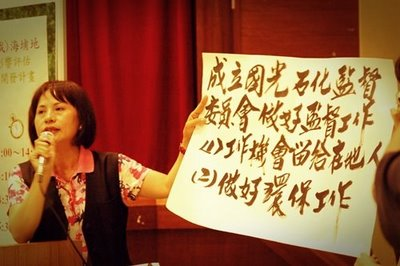 )海埔地
響評估
開發計畫
成立國光石化監督
委員會做好監督工作
(1)工作機會留給在地人
(2)做好環保工作